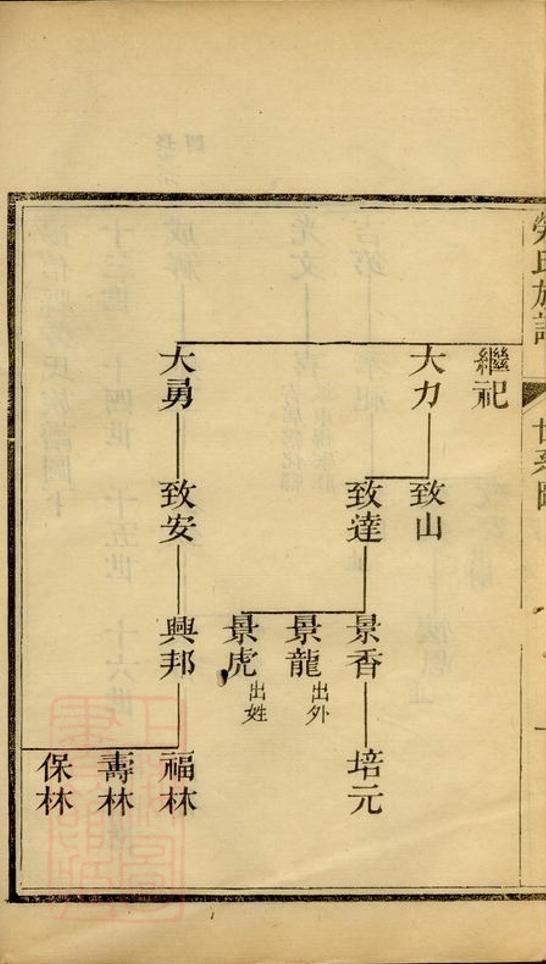 世系圖
繼祀
大力
大勇
致山
致達
致安
景香
景龍 出外
景虎 出姓
興邦
培元
福林
壽林
保林